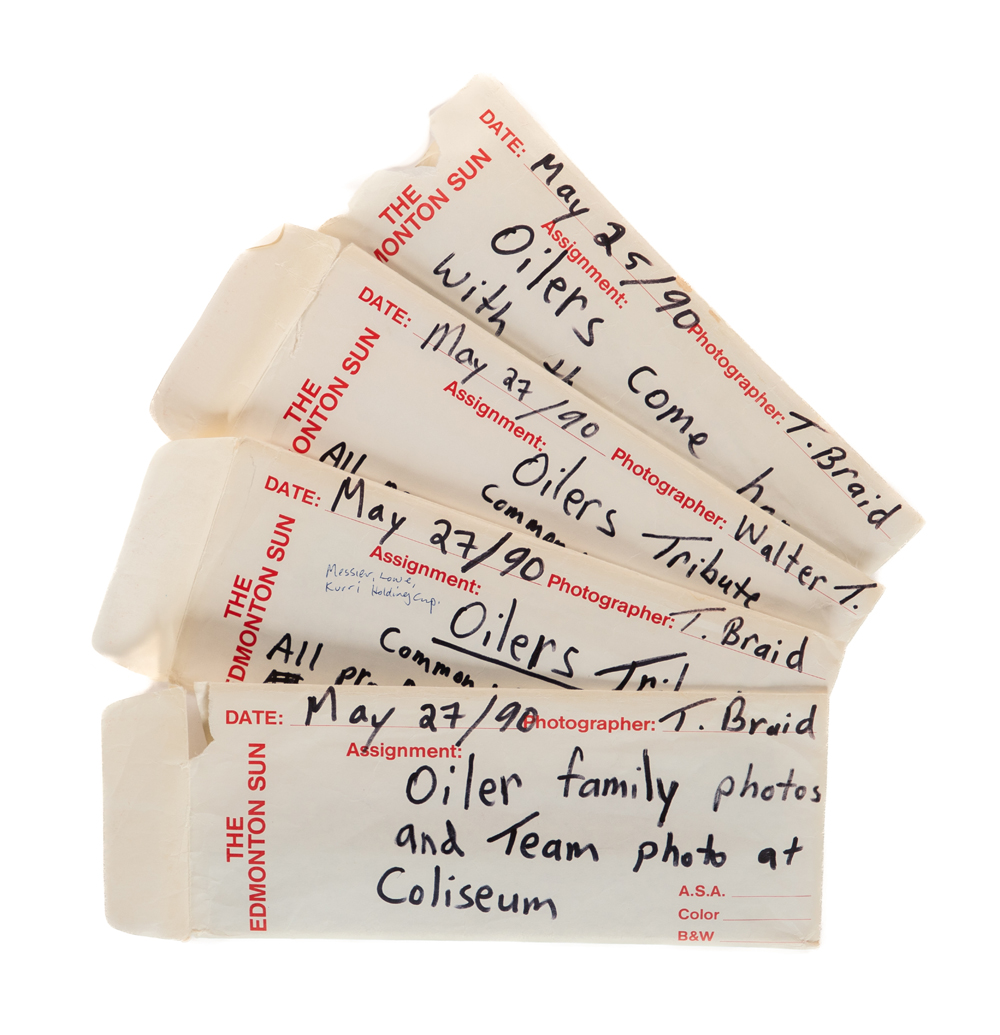 DATE: May 25/90 Photographer: T. Braid
THE
MONTON SUN
Assignment:
Oilers come
with
DATE: May 27/90 Photographer: Walter T.
THE
ONTON SUN
Assignment:
Oilers Tribute
All
DATE: May 27/90 Photographer: T. Braid
THE
DMONTON SUN
Assignment:
Messier, Lowe,
Kurri Holding Cup.
Oilers
All
DATE: May 27/90 Photographer: T. Braid
THE
EDMONTON SUN
Assignment:
Oiler family photos
and Team photo at
Coliseum
A.S.A.
Color
B&W